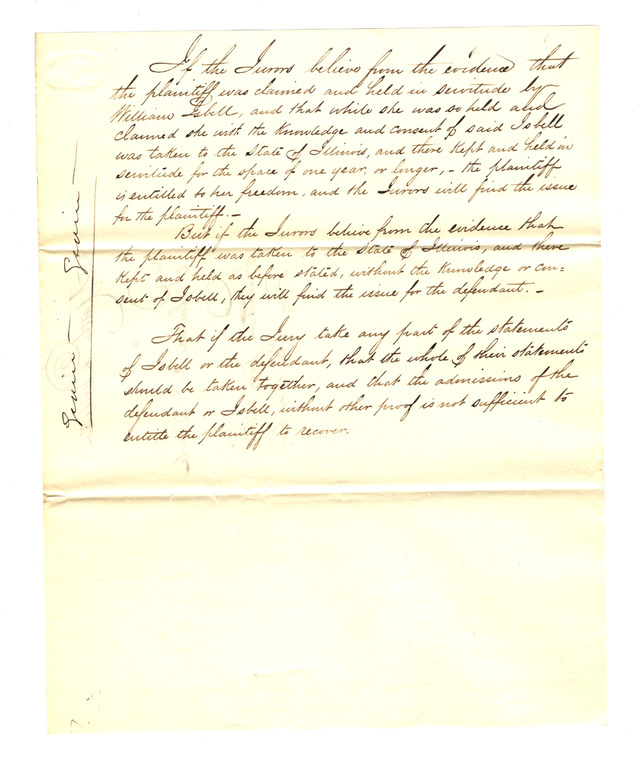 If the Jurors believe from the evidence that
the plaintiff was claimed and held in servitude by
William Isbell, and that while she was so held and
claimed she with the Knowledge and consent of said Isbell
was taken to the State of Illinois, and there Kept and held in
servitude for the space of one year, or longer, - the plaintiff
is entitled to her freedom, and the Jurors will find the issue
for the plaintiff. -
But if the Jurors believe from the evidence that
the plaintiff was taken to the State of Illinois, and there
Kept and held as before stated, without the Knowledge or con=
sent of Isbell, they will find the issue for the defendant. -
That if the Jury take any part of the statements
of Isbell or the defendant, that the whole of their statements
should be taken together, and that the admissions of the
defendant or Isbell, without other proof is not sufficient to
entitle the plaintiff to recover.
Given - Given -